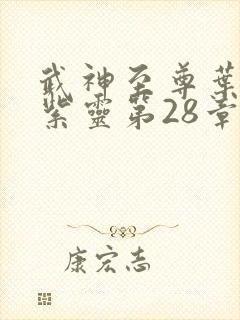 武神至尊葉
紫靈第28章
康宏志